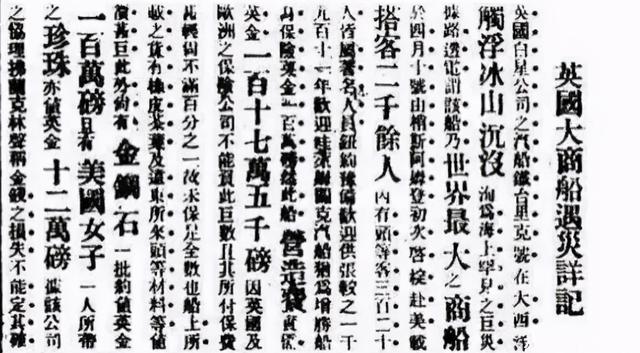 英國大商船遇災詳記
英國白星公司之汽船鐵台里克號在大西洋
觸浮冰山沉沒洵為海上罕見之巨災
據路透電謂該船乃世界最大之商船
於四月十號由梢斯阿姆登初次啓椗赴美載
搭客二千餘人內有頭等客三百二十
人皆屬著名人員紐約豫備歡迎供張較之一千
九百十一年歡迎
克汽船猶為增勝船
身保險英金一百萬磅然此船營造費實值
英金一百十七萬五千磅因英國及
歐洲之保險公司不能負此巨數且其所付保費
甚輕尚不滿百分之一故未保足全數也船上所
載之貨有橡皮茶葉及遠東所來頭等材料等值
價甚巨此外約有金鋼石一批約值英金
一百萬磅且有美國女子一人所帶
之珍珠亦值英金十二萬磅據該公司
之協理拂蘭克林聲稱金錢之損失不能定其確